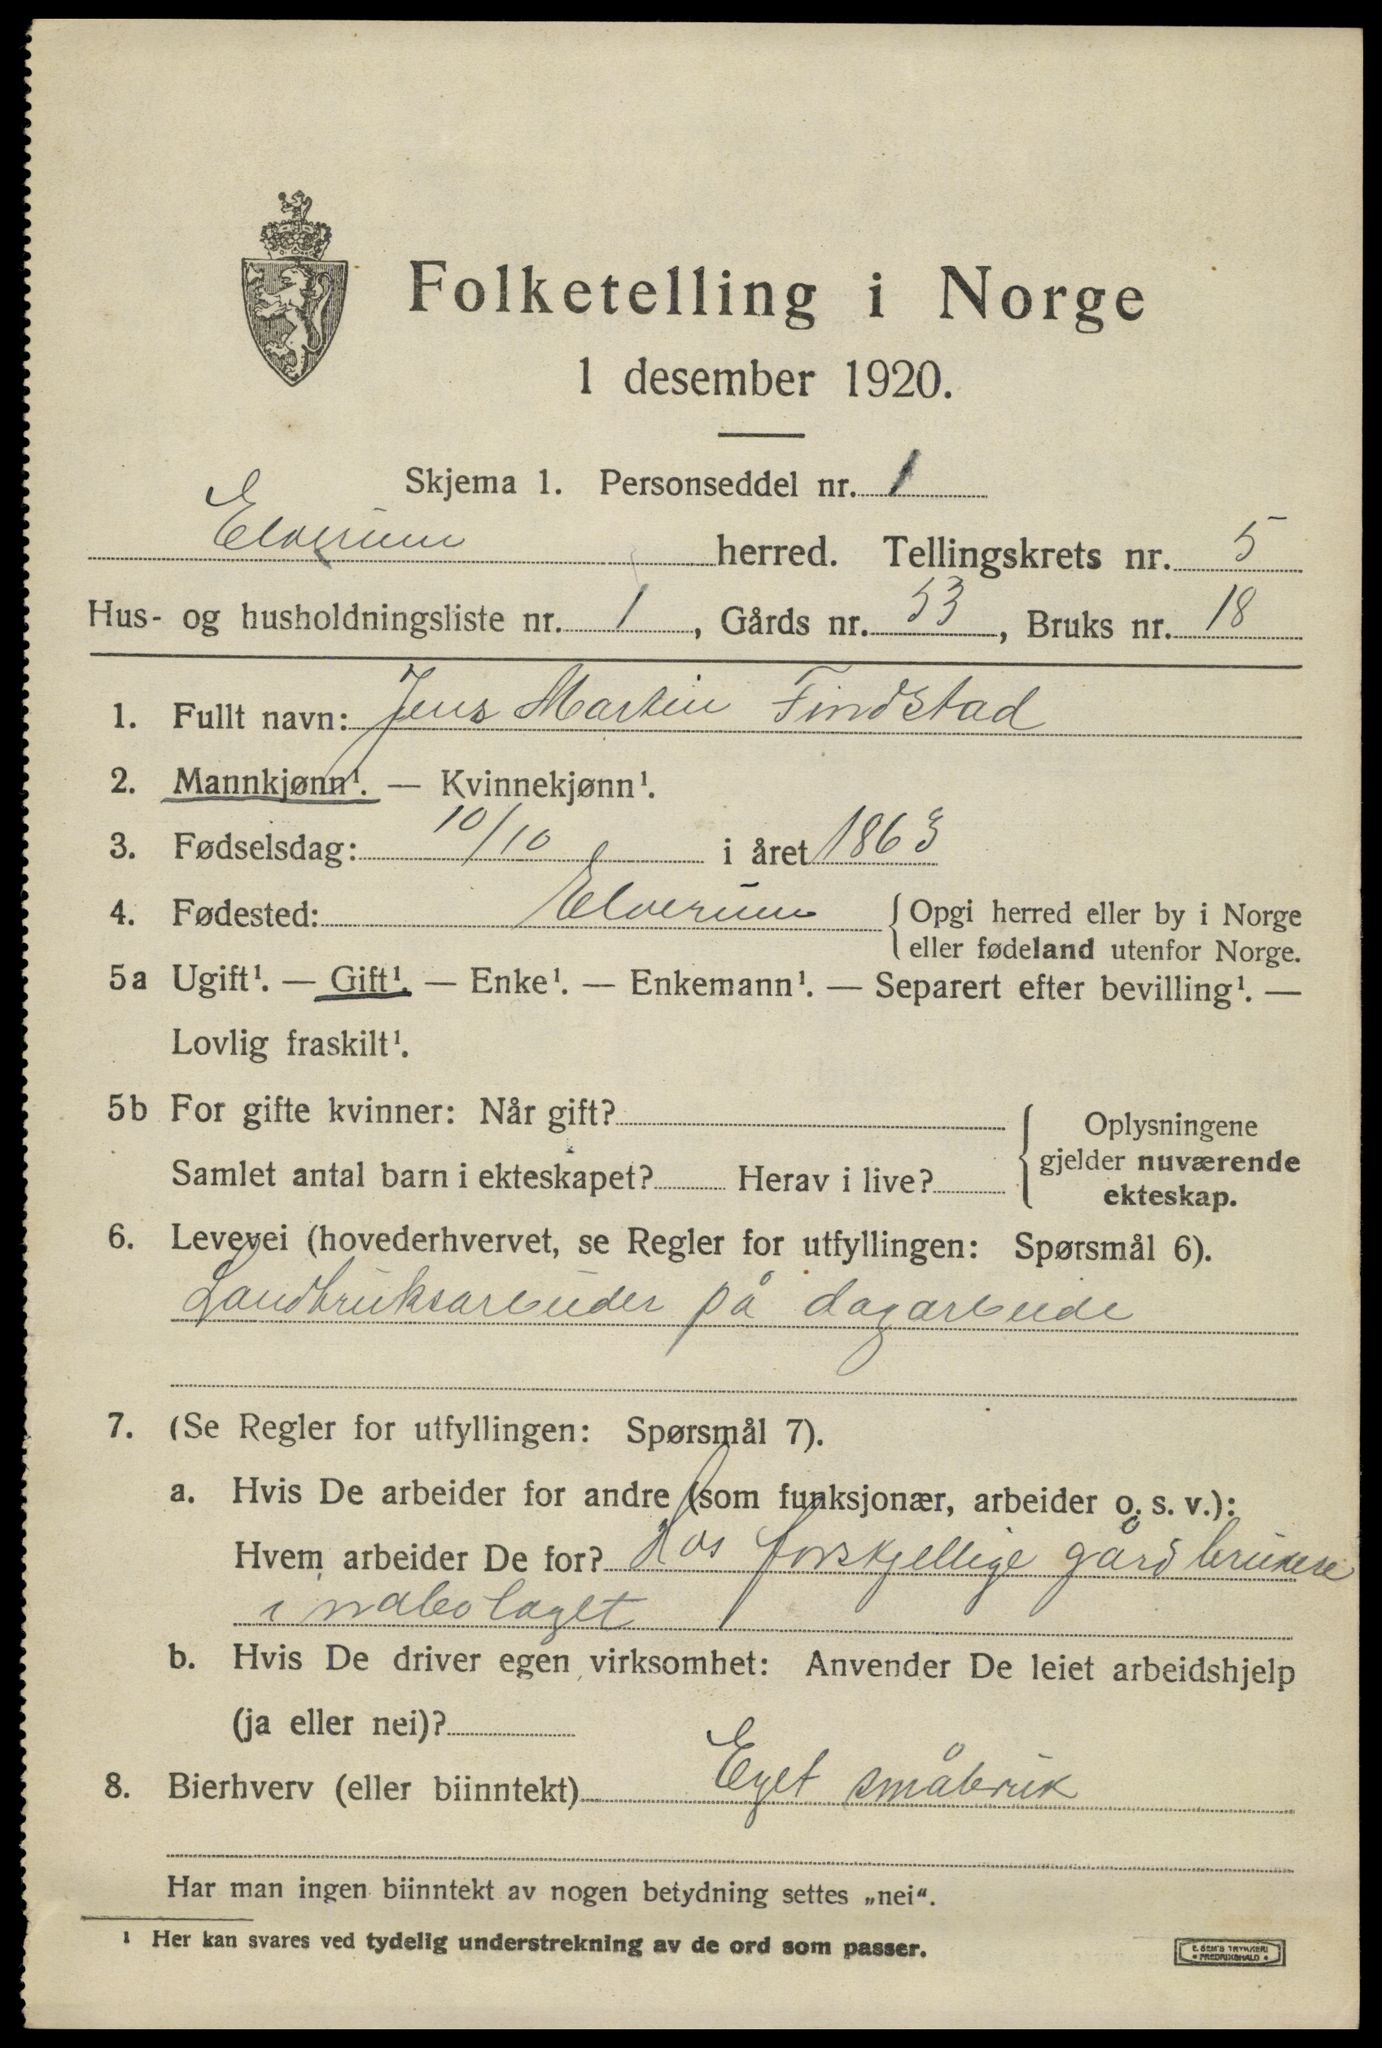 Folketelling i Norge
1 desember 1920.
Skjema 1. Personseddel nr. 1
Elverum herred. Tellingskrets nr. 5
Hus- og husholdningsliste nr. 1, Gårds nr. 53, Bruks nr. 18
1. Fullt navn: Jens Martin Findstad
2. Mannkjønn¹. — Kvinnekjønn¹.
3. Fødselsdag: 10/10 i året 1863
4. Fødested: Elverum { Opgi herred eller by i Norge
eller fødeland utenfor Norge.
5a Ugift¹. — Gift¹. — Enke¹. — Enkemann¹. — Separert efter bevilling¹. —
Lovlig fraskilt¹.
5b For gifte kvinner: Når gift? { Oplysningene
gjelder nuværende
Samlet antal barn i ekteskapet? Herav i live?
ekteskap.
6. Levevei (hovederhvervet, se Regler for utfyllingen: Spørsmål 6).
Landbruksarbeider på dagarbeide
7. (Se Regler for utfyllingen: Spørsmål 7).
a. Hvis De arbeider for andre (som funksjonær, arbeider o. s. v.):
Hvem arbeider De for? Hos forskjellige gårdbrukere
i nabolaget
b. Hvis De driver egen virksomhet: Anvender De leiet arbeidshjelp
(ja eller nei)?
8. Bierhverv (eller biinntekt) Eget småbruk
Har man ingen biinntekt av nogen betydning settes „nei“.
¹ Her kan svares ved tydelig understrekning av de ord som passer.
E. SEM'S TRYKKERI
• FREDRIKSHALD •